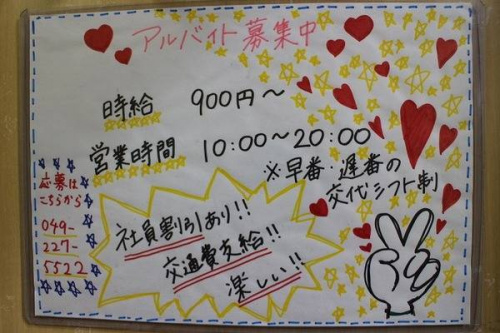 アルバイト募集中
時給 900円～
営業時間 10:00～20:00
※早番・遅番の
交代シフト制
応募は
こちらから
049-
227-
5522
社員割引あり!!
交通費支給!!
楽しい!!